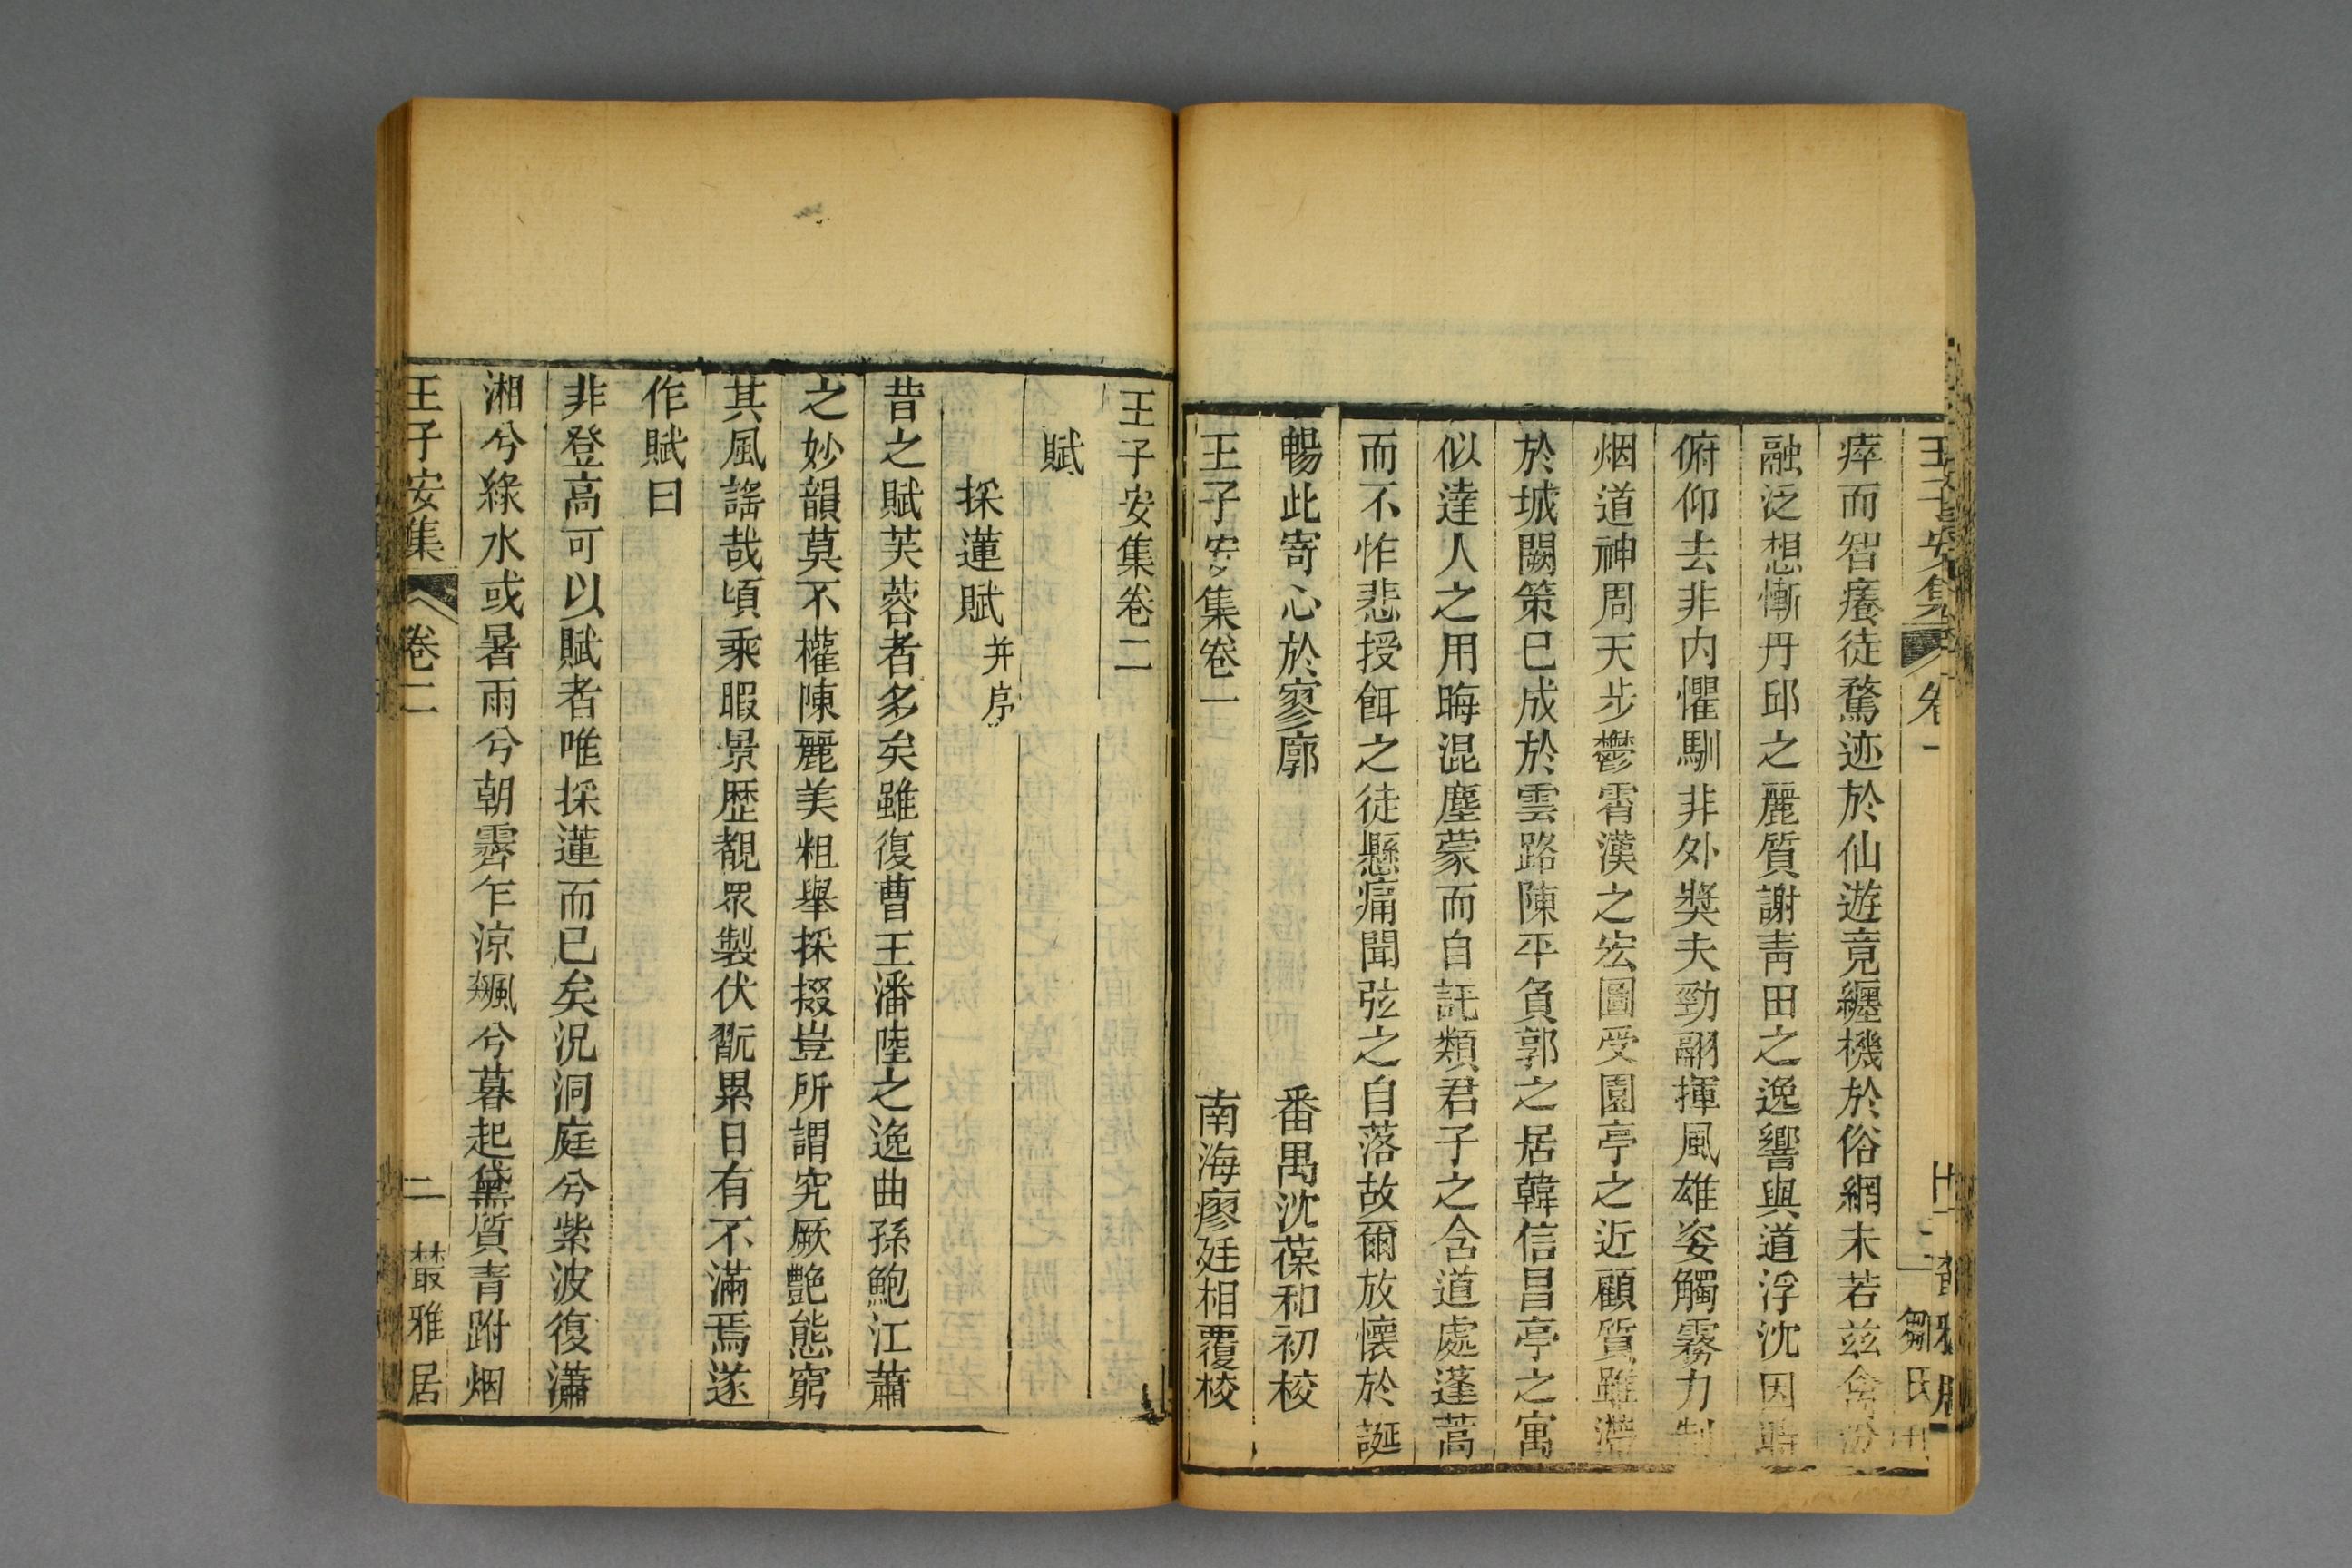 瘁而智癢徒騖迹於仙遊竟纏機於俗網未若茲禽
融泛想慚丹邱之麗質謝靑田之逸響與道浮沈因
俯仰去非内懼馴非外獎夫勁翮揮風雄姿觸霧力制
烟道神周天步鬱霄漢之宏圖受園亭之近顧質雖滯
於城闕策巳成於雲路陳平負郭之居韓信昌亭之寓
似達人之用晦混塵蒙而自託類君子之含道處蓬蒿
而不怍悲授餌之徒懸痛聞弦之自落故爾放懷於誕
暢此寄心於寥廓 番禺沈葆和初校
王子安集卷一 南海廖廷相覆校
王子安集卷二
賦
採蓮賦并序
昔之賦芙蓉者多矣雖復曹王潘陸之逸曲孫鮑江蕭
之妙韻莫不權陳麗美粗舉採掇豈所謂究厥艶態窮
其風謠哉頃乘暇景歴覩眾製伏翫累日有不滿焉遂
作賦曰
非登高可以賦者唯採蓮而已矣況洞庭兮紫波復瀟
湘兮綠水或暑雨兮朝霽乍涼飈兮暮起黛質青跗烟
王子安集 卷二 二 叢雅居